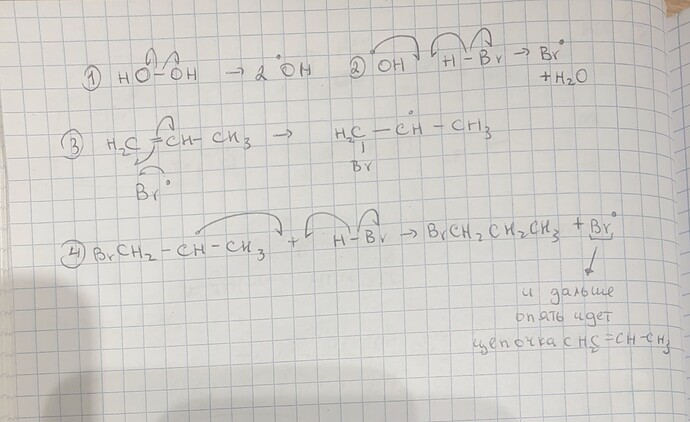 ① HO-OH → 2 •OH ② •OH H-Br → Br• + H2O
③ H2C=CH-CH3 → H2C-ĊH-CH3
Br• Br
④ BrCH2-CH-CH3 + H-Br → BrCH2CH2CH3 + Br•
и дальше
опять идет
цепочка CH2=CH-CH3